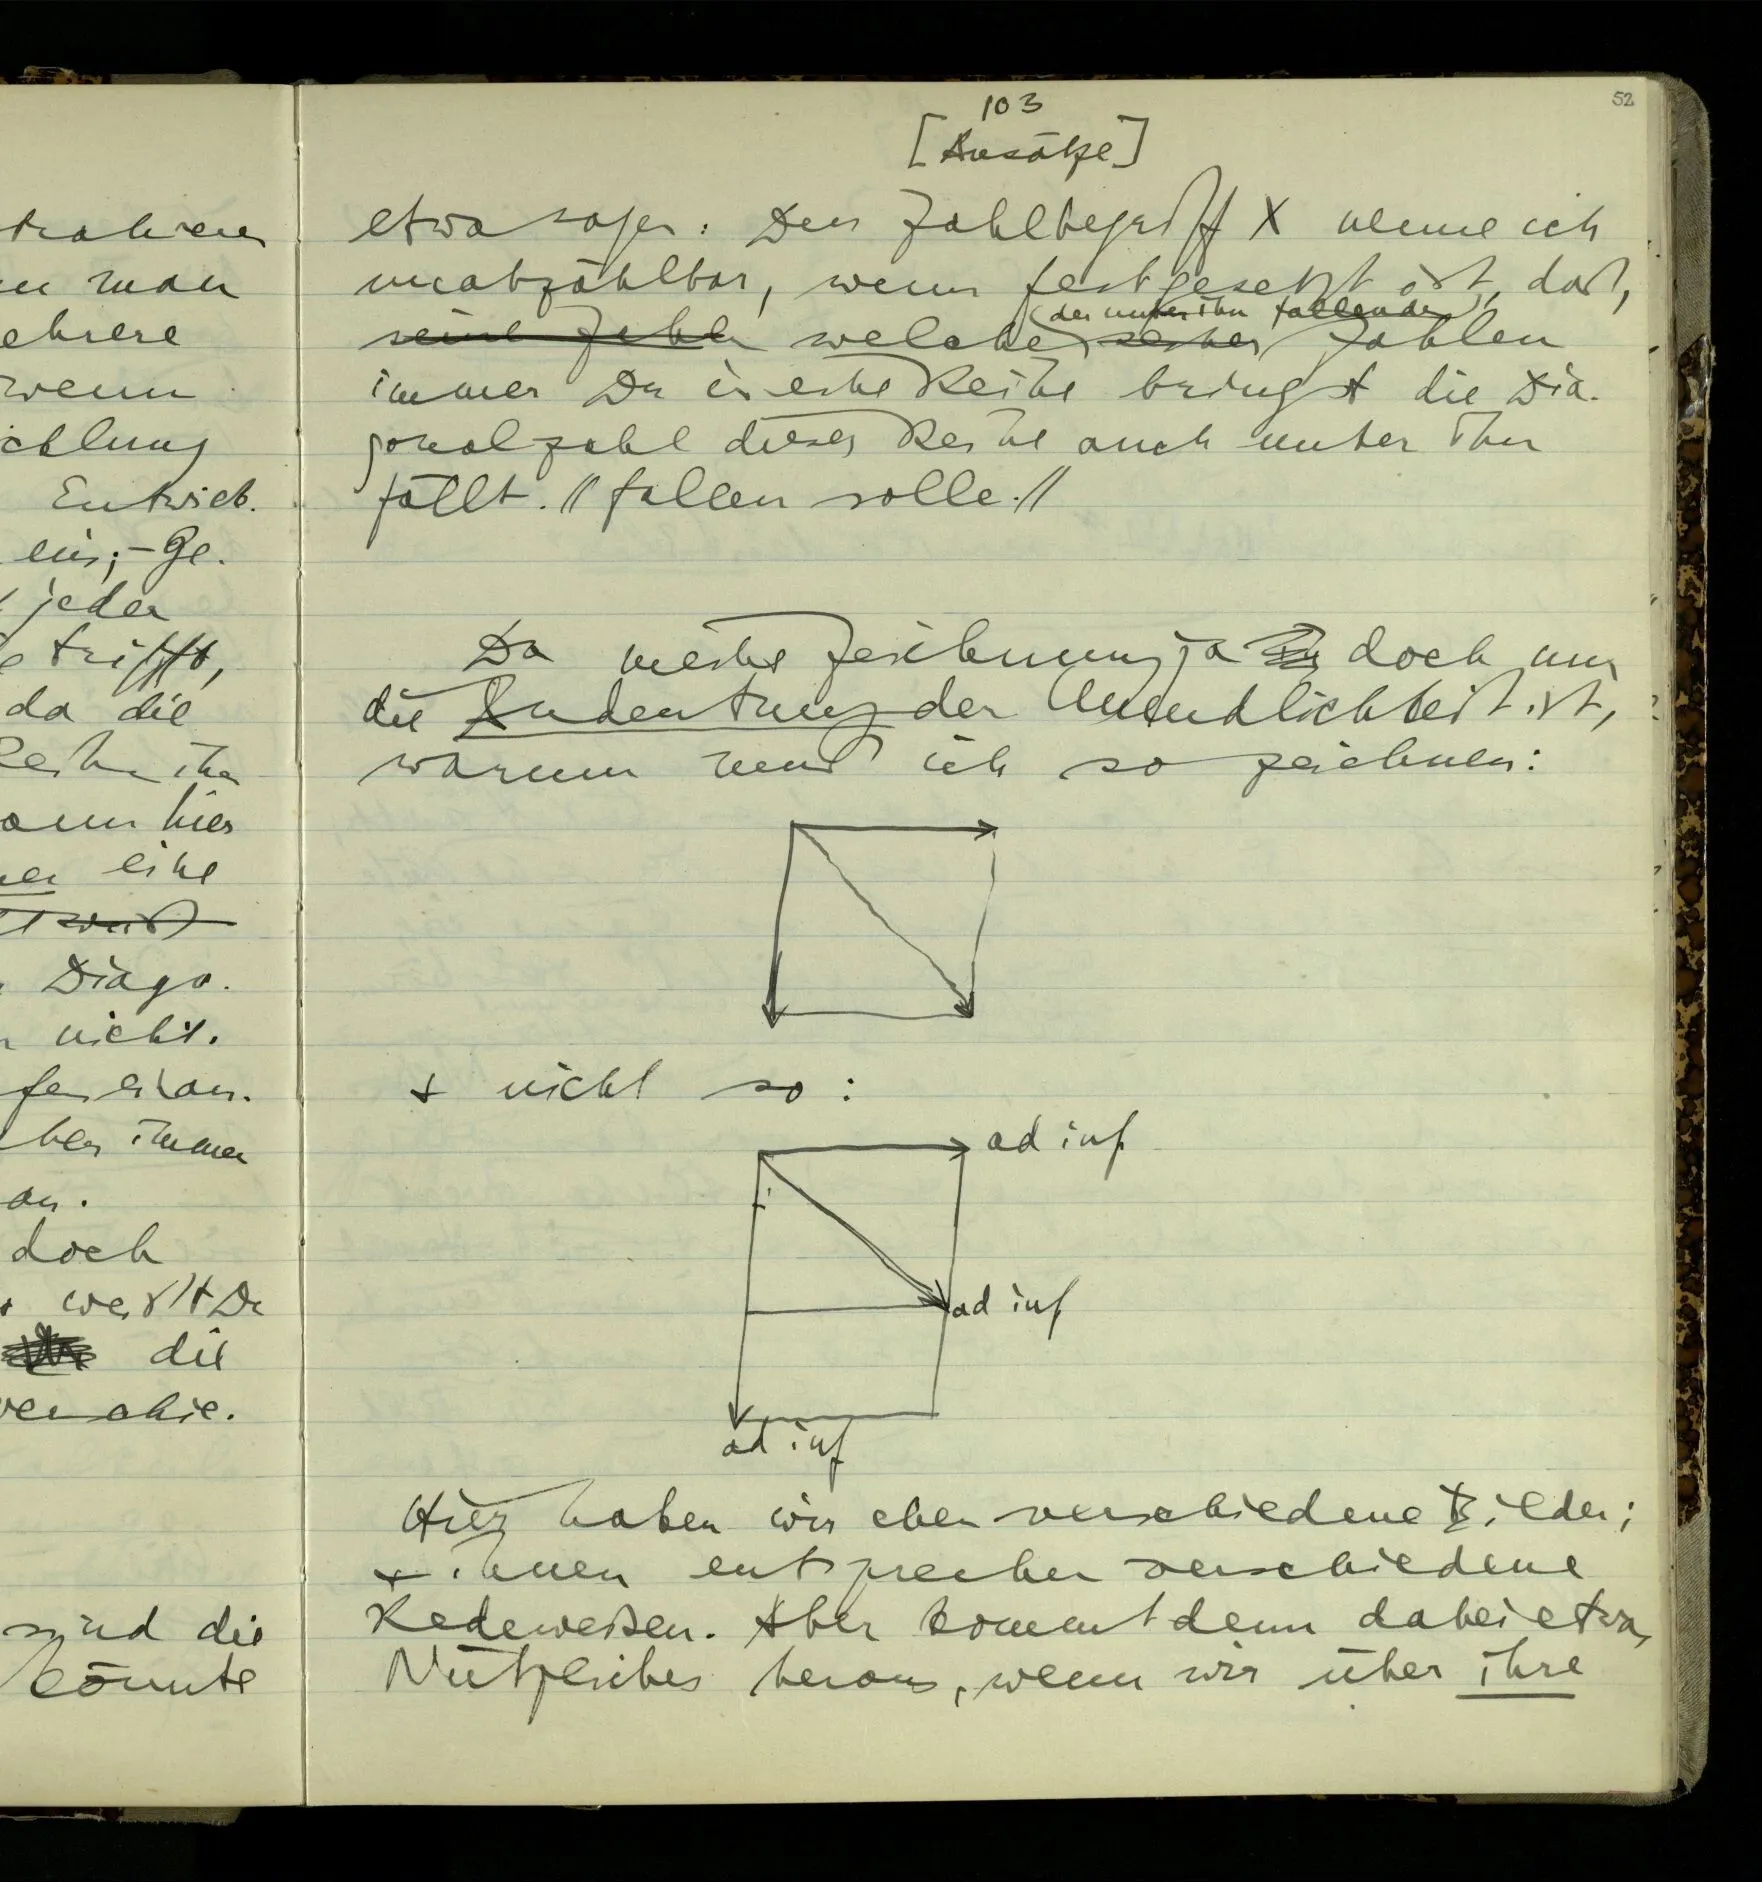 103
52
[Ansätze]
etwa sagen: Den Zahlbegriff X nenne ich
unabzählbar, wenn festgesetzt ist, daß,
der unter ihn fallenden
seine Zahlen welche seiner Zahlen
immer Du in eine Reihe bringst die Dia-
gonalzahl dieser Reihe auch unter ihn
fällt. // fallen solle. //
Da meine Zeichnung ja doch nur
die Andeutung der Unendlichkeit ist,
warum muß ich so zeichnen:
+ nicht so:
ad inf
ad inf
ad inf
Hier haben wir eben verschiedene Bilder;
+ ihnen entsprechen verschiedene
Redeweisen. Aber kommt denn dabei etwas
Nützliches heraus, wenn wir über ihre
man
ehrere
wenn
icklung
Entwick-
ein; – Ge-
jeder
trifft,
da die
hier
eine
Diago-
nicht.
immer
an.
doch
weißt Du
die
sind die
könnte